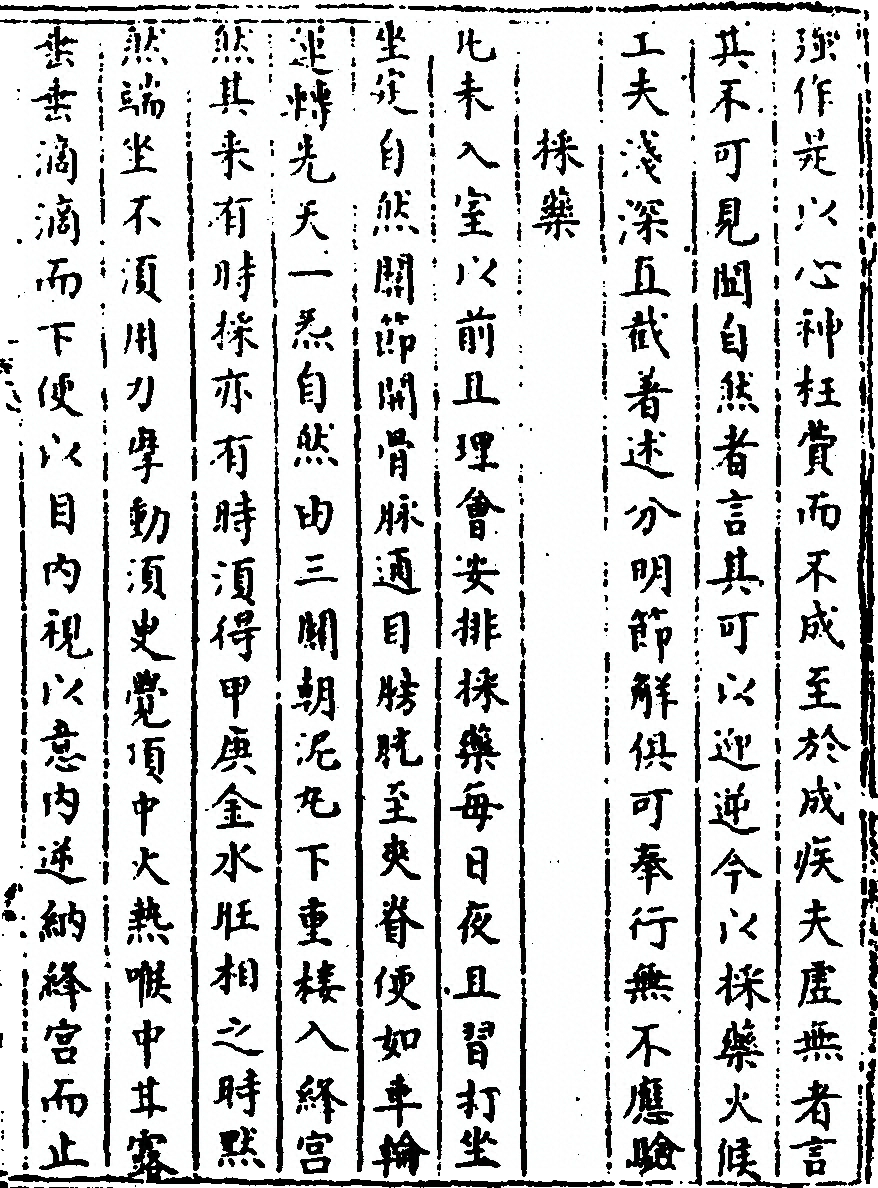 強作是以心神枉費而不成至於成疾夫虛無者言
其不可見聞自然者言其可以迎逆今以採藥火候
工夫淺深直截著述分明節解俱可奉行無不應驗
採藥
凡未入室以前且理會安排採藥每日夜且習打坐
坐定自然關節開骨脉通目膀胱至夾脊便如車輪
運轉先天一炁自然由三關朝泥丸下重楼入絳宫
然其来有時採亦有時須得甲庚金水旺相之時默
然端坐不須用力摩動須臾覺頂中火熱喉中甘露
垂垂滴滴而下便以目内視以意内逆納絳宫而止